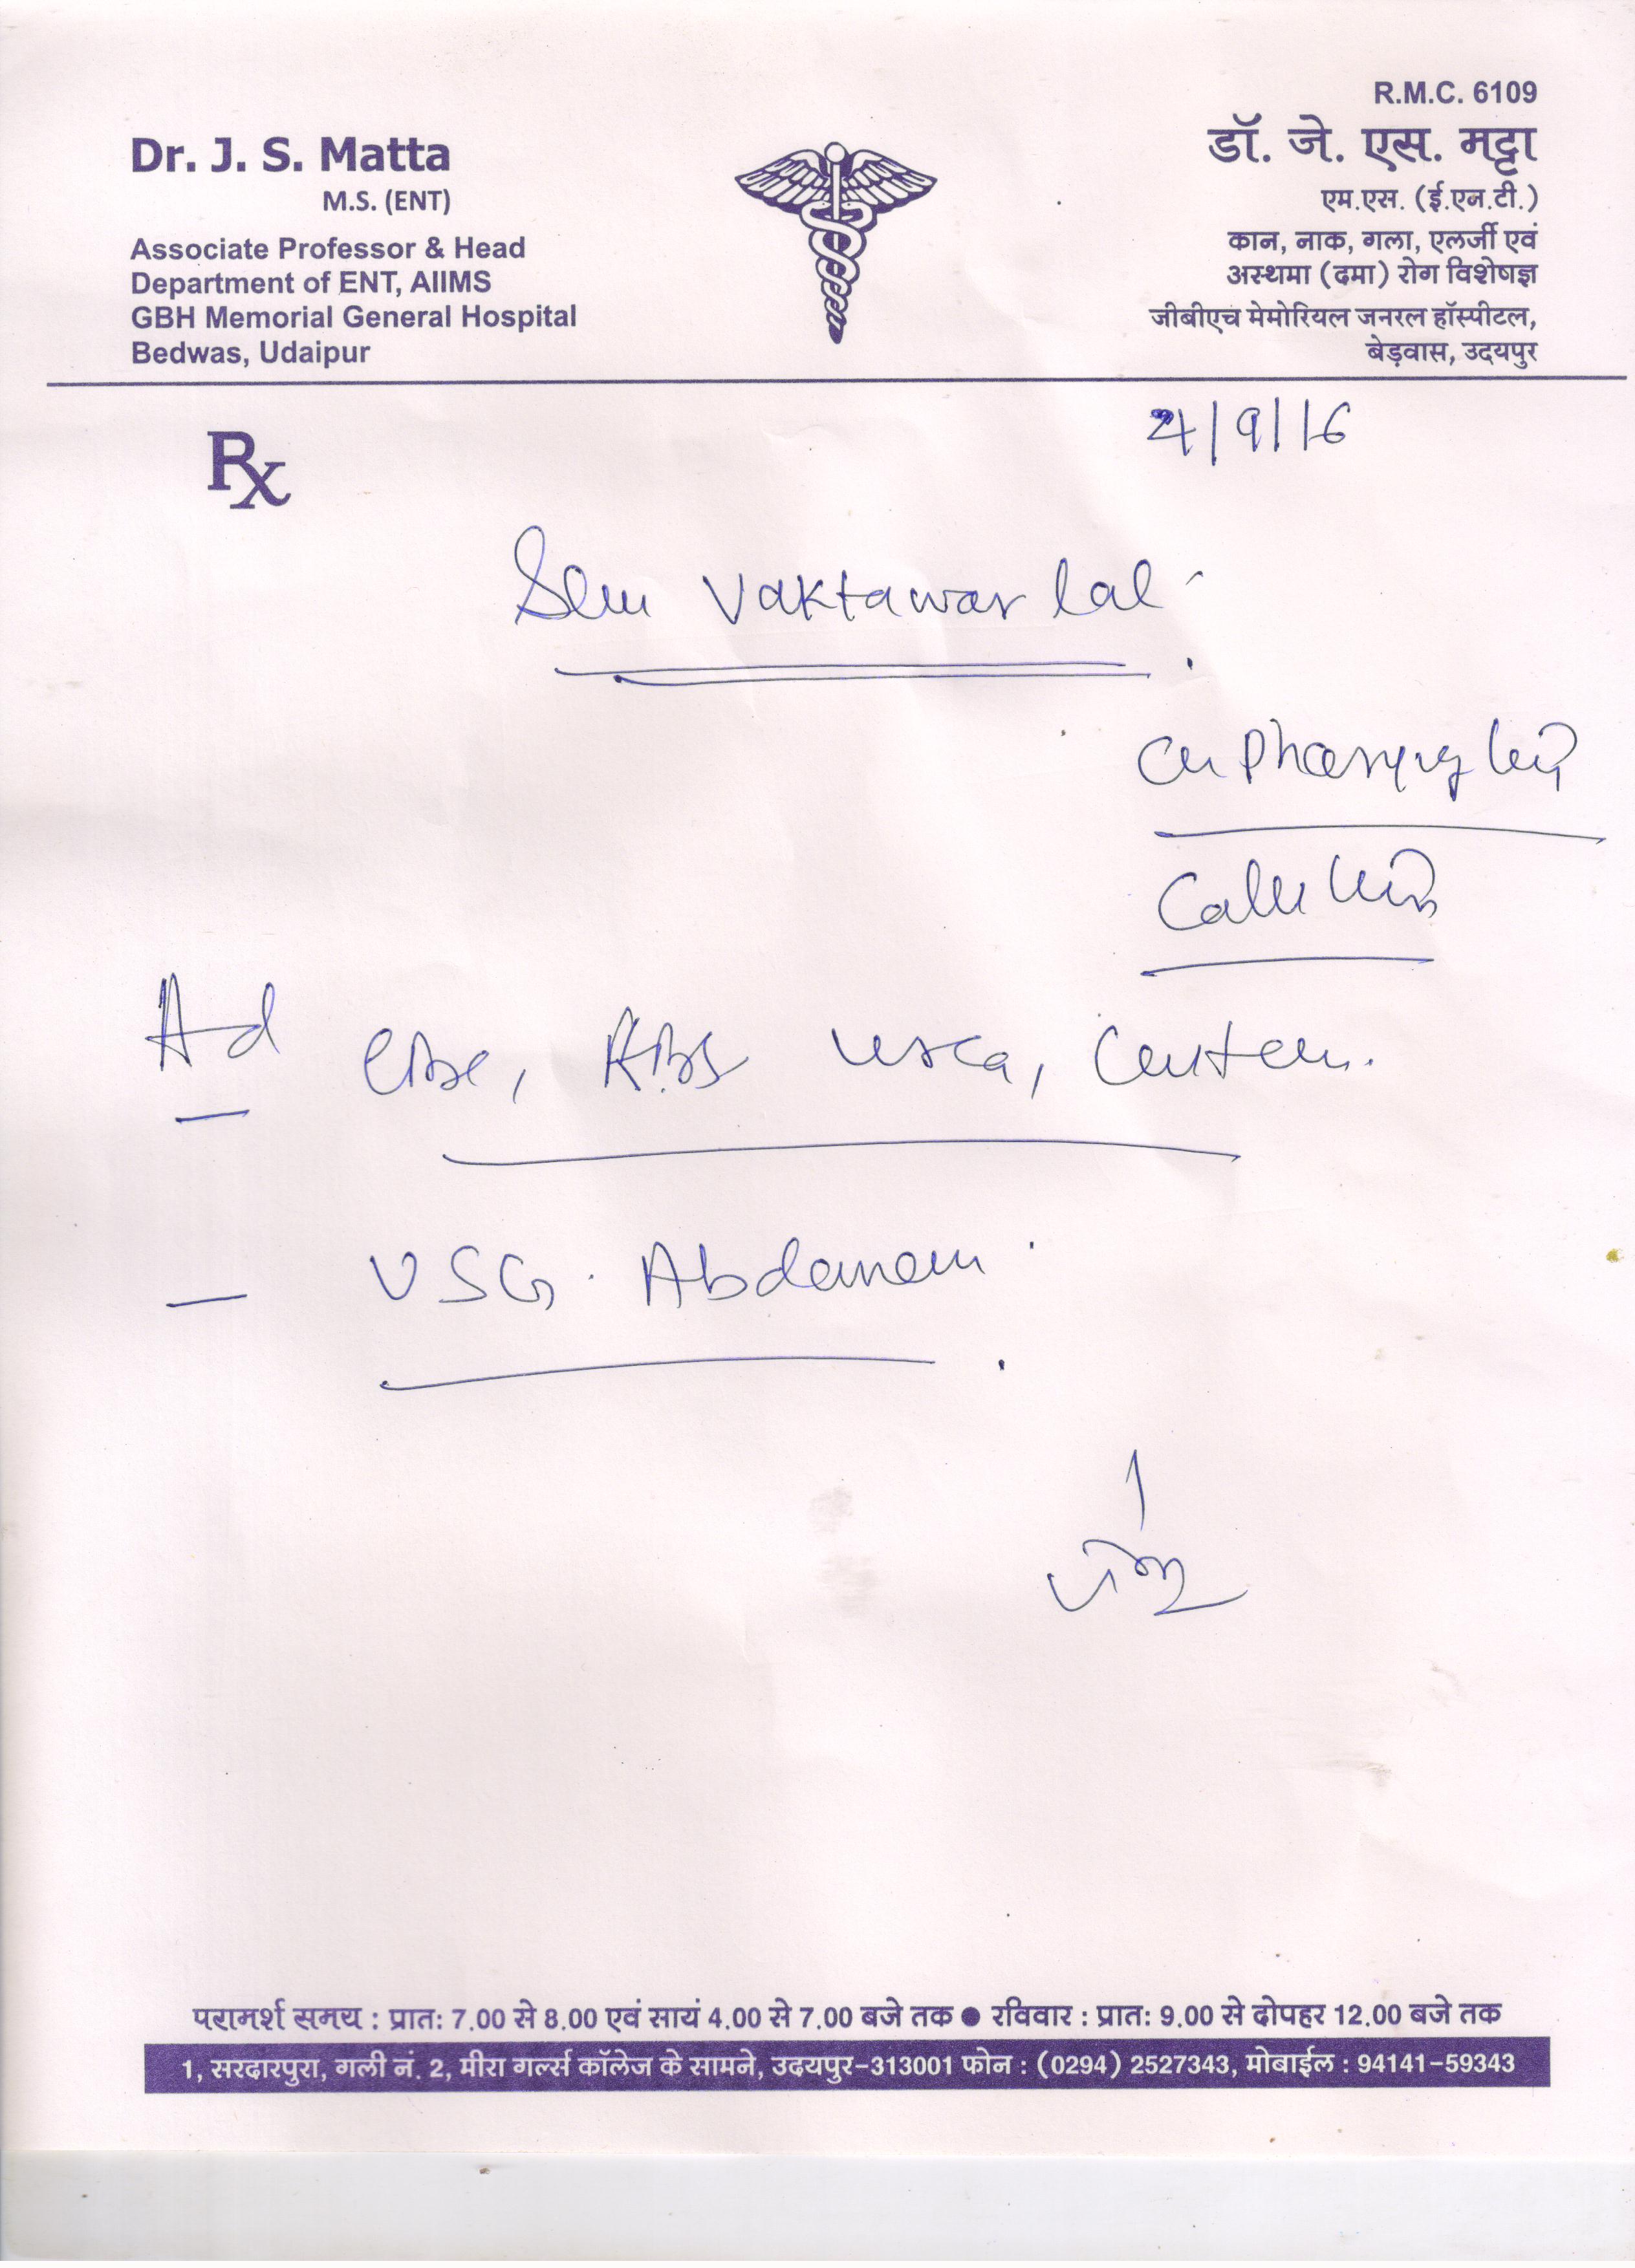 R.M.C. 6109
Dr. J. S. Matta
M.S. (ENT)
Associate Professor & Head
Department of ENT, AIIMS
GBH Memorial General Hospital
Bedwas, Udaipur
डॉ. जे. एस. मट्टा
एम.एस. (ई.एन.टी.)
कान, नाक, गला, एलर्जी एवं
अस्थमा (दमा) रोग विशेषज्ञ
जीबीएच मेमोरियल जनरल हॉस्पीटल,
बेड़वास, उदयपुर
/9/16
Rx
Vaktawar lal
Ad
USG. Abdomen
परामर्श समय : प्रातः 7.00 से 8.00 एवं सायं 4.00 से 7.00 बजे तक ● रविवार : प्रातः 9.00 से दोपहर 12.00 बजे तक
1, सरदारपुरा, गली नं. 2, मीरा गर्ल्स कॉलेज के सामने, उदयपुर-313001 फोन : (0294) 2527343, मोबाईल : 94141-59343